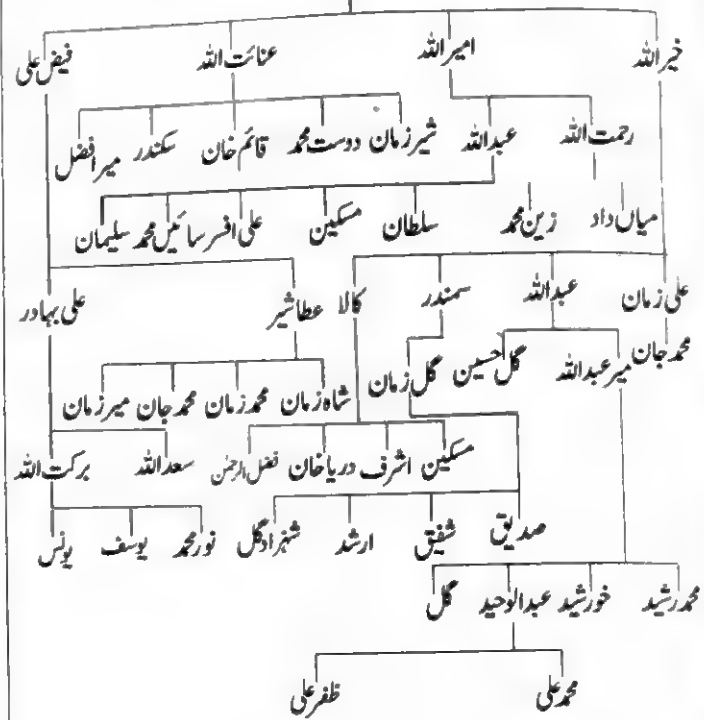 خیراللہ امیراللہ عنائت اللہ فیض علی
رحمت اللہ عبداللہ شیرزمان دوست محمد قائم خان سکندر میرافضل
میاں داد زین محمد سلطان مسکین علی افسر سائیں محمد سلیمان
علی زمان عبداللہ سمندر کالا عطاشیر علی بہادر
محمد جان میر عبداللہ گل حسین گل زمان شاہ زمان محمد زمان محمد جان میرزمان
مسکین اشرف دریاخان فضل الرحمٰن سعداللہ برکت اللہ
صدیق شفیق ارشد شہزادگل نورمحمد یوسف یونس
محمد رشید خورشید عبدالوحید گل
محمد علی ظفر علی